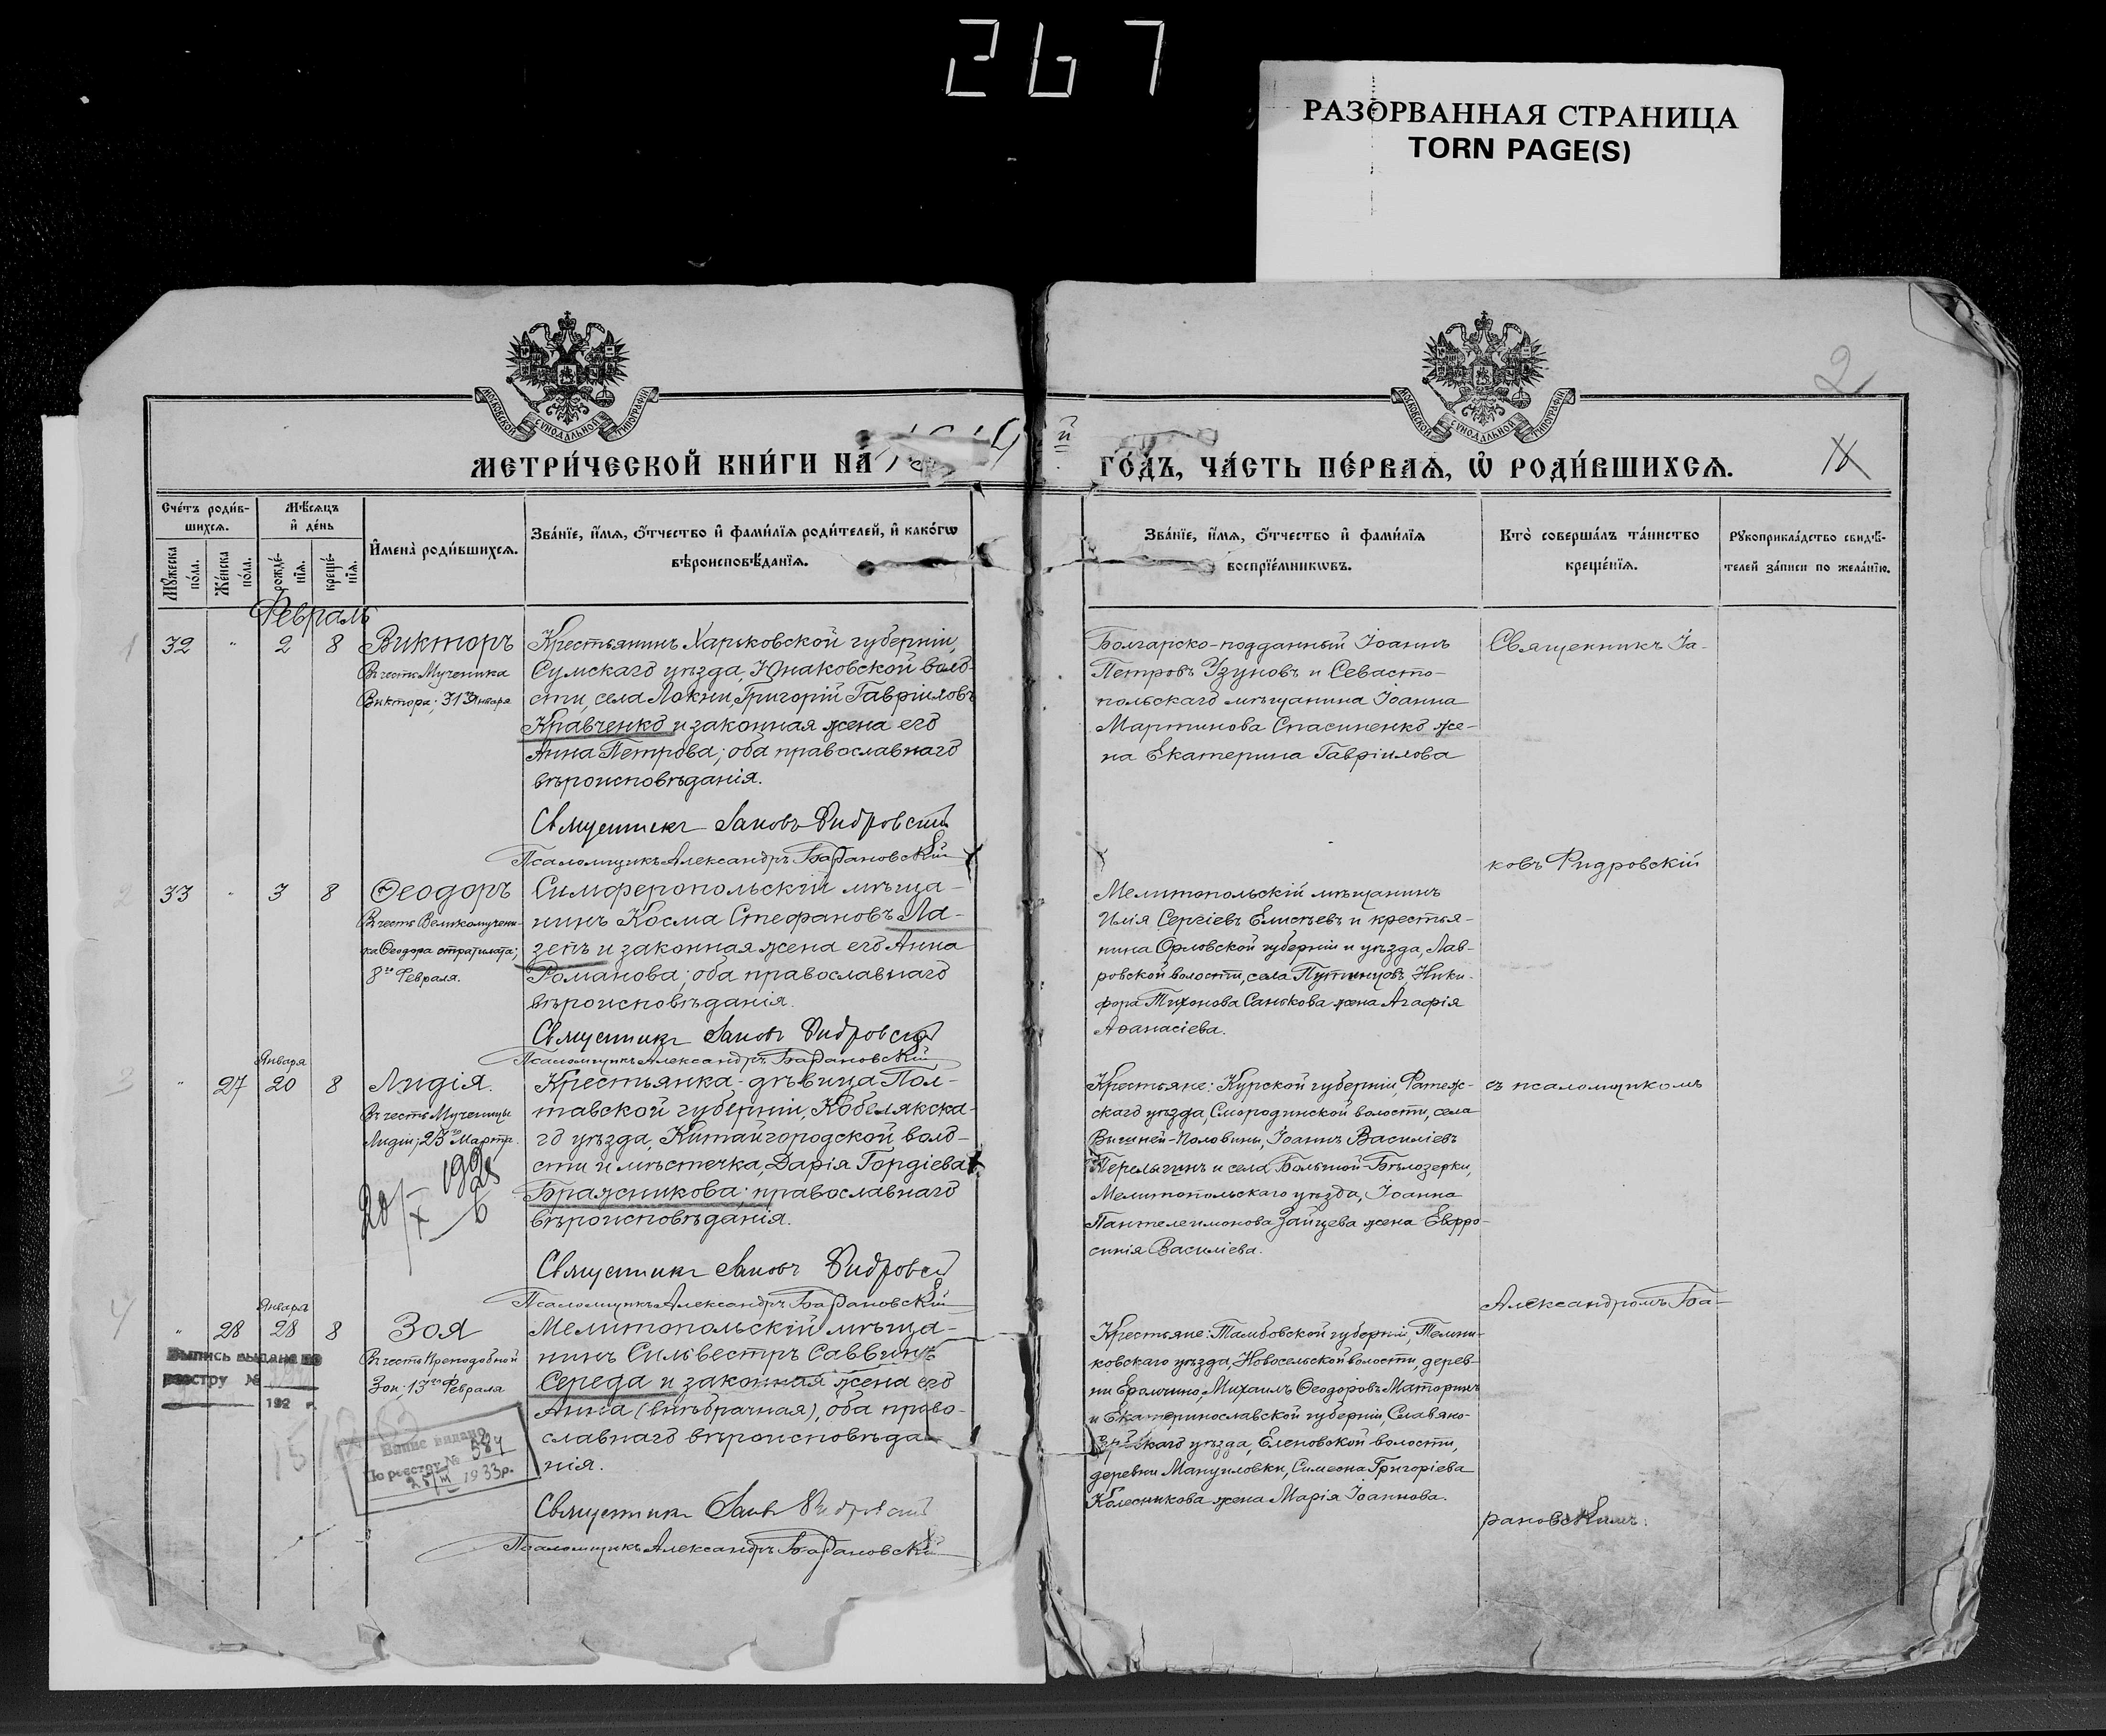 267
РАЗОРВАННАЯ СТРАНИЦА
TORN PAGE(S)
2
МОСКОВСКОЙ СУНОДАЛЬНОЙ ТИПОГРАФІИ
МОСКОВСКОЙ СУНОДАЛЬНОЙ ТИПОГРАФІИ
МЕТРИ́ЧЕСКОЙ КНИ́ГИ НА́ й ГО́ДЪ, ЧА́СТЬ ПЕ́РВАѦ, Ѡ РОДИ́ВШИХСѦ.
Сче́тъ роди́в-
шихсѧ.
Мѣсѧцъ
и де́нь
Мꙋжеска
пола.
Же́нска
по́ла.
рожде́-
нїѧ.
креще́-
нїѧ.
Имена̀ роди́вшихсѧ.
Зва́нїе, и́мѧ, ѻ́тчество и фами́лїѧ роди́телей, и како́гѡ
вѣроисповѣ́данїѧ.
Зва́нїе, и́мѧ, ѻ́тчество и фами́лїѧ
воспрїе́мникѡвъ.
Кто̀ соверша́лъ та́инство
креще́нїѧ.
Рꙋкоприкла́дство свидѣ́-
телей за́писи по жела́нїю.
Февраль
1
32 " 2 8 Викторъ
Въ честь Мученика
Виктора; 31 Января
Крестьянинъ Харьковской губерніи,
Сумскаго уѣзда, Юнаковской воло-
сти, села Локни, Григорій Гавріиловъ
Кравченко и законная жена его
Анна Петрова; оба православнаго
вѣроисповѣданія.
Священникъ Іаковъ Фидровскій
Псаломщикъ Александръ Барановскій
Болгарско-подданный Іоаннъ
Петровъ Узуновъ и Севасто-
польскаго мѣщанина Іоанна
Мартинова Спасиненко же-
на Екатерина Гавріилова
Священникъ Іа-
ковъ Фидровскій
2
33 " 3 8 Ѳеодоръ
Въ честь Великомучени-
ка Ѳеодора стратилата;
8го Февраля.
Симферопольскій мѣща-
нинъ Косма Стефановъ Ла-
зепъ и законная жена его Анна
Романова; оба православнаго
вѣроисповѣданія.
Священникъ Іаковъ Фидровскій
Псаломщикъ Александръ Барановскій
Мелитопольскій мѣщанинъ
Илія Сергіевъ Елисѣевъ и крестья-
нина Орловской губерніи и уѣзда, Лав-
ровской волости, села Путимцовъ, Ники-
фора Тихонова Санькова жена Агафія
Аѳанасіева.
3
Января
" 27 20 8 Лидія.
Въ честь Мученицы
Лидіи; 23го Марта.
20/X 1928
Крестьянка-дѣвица Пол-
тавской губерніи, Кобелякска-
го уѣзда, Китайгородской воло-
сти и мѣстечка, Дарія Гордіева
Бражникова; православнаго
вѣроисповѣданія.
Священникъ Іаковъ Фидровскій
Псаломщикъ Александръ Барановскій
Крестьяне: Курской губерніи, Фатеж-
скаго уѣзда, Смородинской волости, села
Вишней-Половины, Іоаннъ Василіевъ
Перелыгинъ и села Большой-Бѣлозерки,
Мелитопольскаго уѣзда, Іоанна
Пантелеимонова Зайцева жена Евфро-
синія Василіева.
съ псаломщикомъ
Александромъ Ба-
4
Января
" 28 28 8 Зоя
Въ честь Преподобной
Зои; 13го Февраля
Выпись выдана по
реестру №
192 г.
Випис видано
По реєстру № 584
25/III 1933р.
Мелитопольскій мѣща-
нинъ Сильвестръ Саввинъ
Середа и законная жена его
Анна (внѣбрачная), оба право-
славнаго вѣроисповѣда-
нія.
Священникъ Іаковъ Фидровскій
Псаломщикъ Александръ Барановскій
Крестьяне: Тамбовской губерніи, Темни-
ковскаго уѣзда, Новосельской волости, дерев-
ни Еромчино, Михаилъ Ѳеодоровъ Маторинъ
и Екатеринославской губерніи, Славяно-
скаго уѣзда, Еленовской волости,
деревни Мануиловки, Симеона Григоріева
Колесникова жена Марія Іоаннова.
рановскимъ.